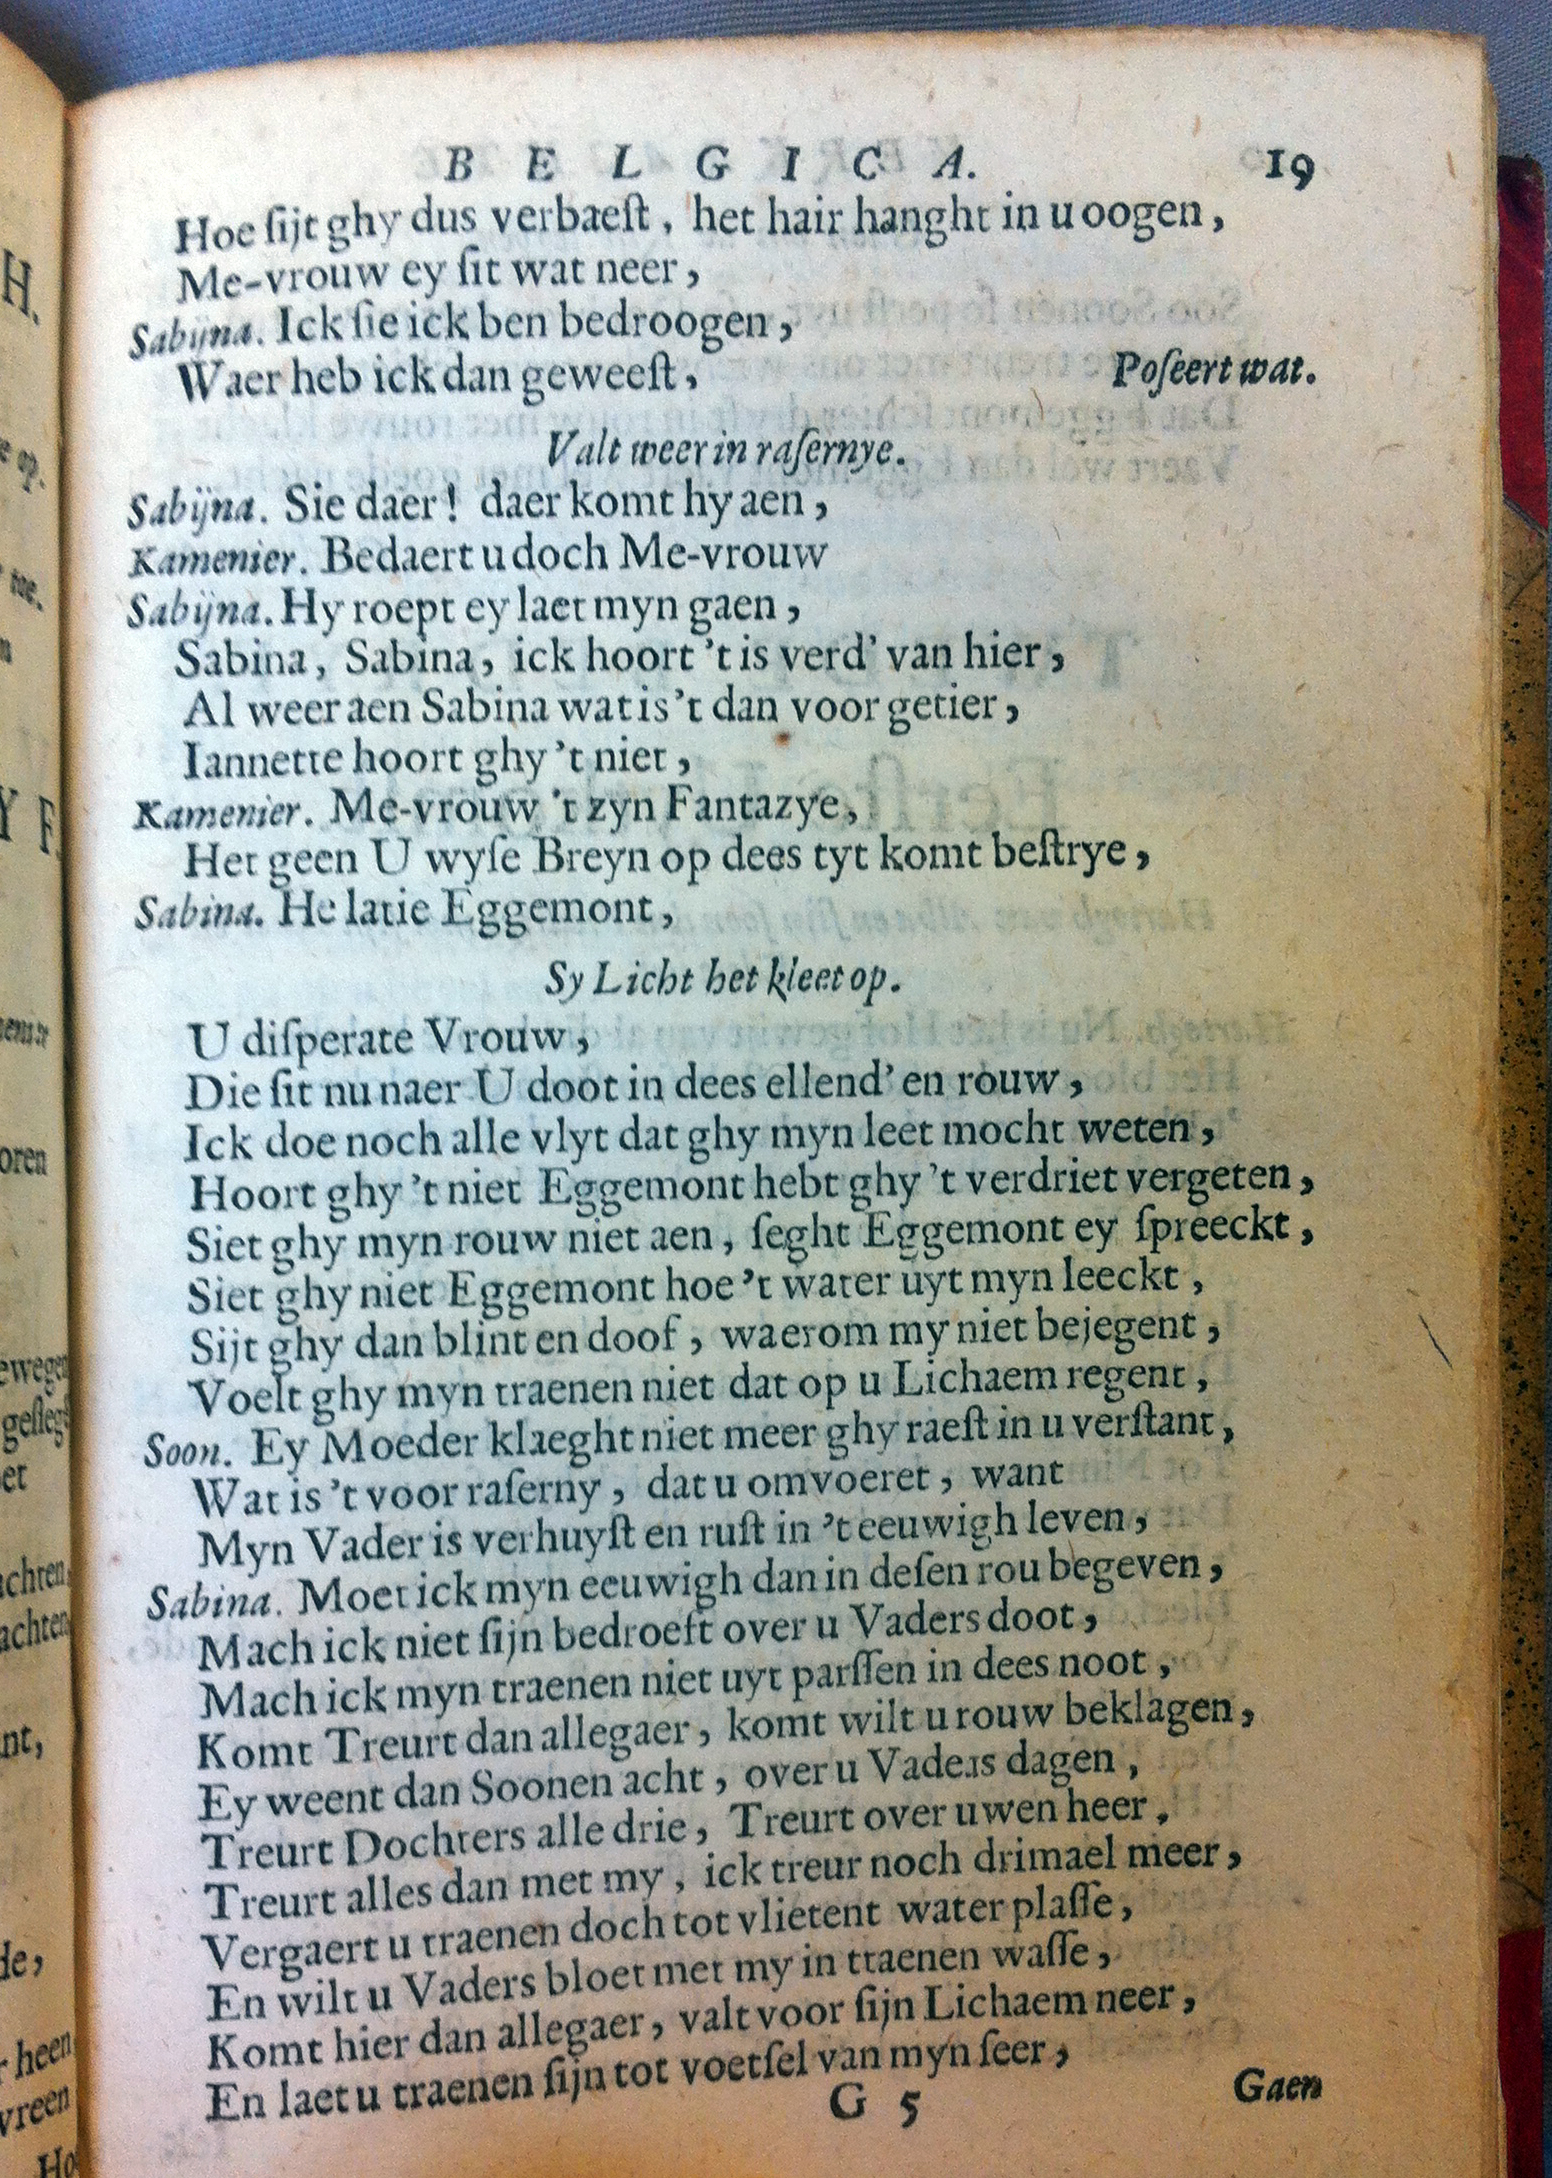 BELGICA. 19
Hoe ſijt ghy dus verbaeſt, het hair hanght in u oogen,
Me-vrouw ey ſit wat neer,
Sabijna. Ick ſie ick ben bedroogen,
Waer heb ick dan geweeſt, Poſeert wat.
Valt weer in raſernye.
Sabijna. Sie daer! daer komt hy aen,
Kamenier. Bedaert u doch Me-vrouw
Sabijna. Hy roept ey laet myn gaen,
Sabina, Sabina, ick hoort 't is verd' van hier,
Al weer aen Sabina wat is 't dan voor getier,
Iannette hoort ghy 't niet,
Kamenier. Me-vrouw 't zyn Fantazye,
Het geen U wyſe Breyn op dees tyt komt beſtrye,
Sabina. He latie Eggemont,
Sy Licht het kleet op.
U diſperate Vrouw,
Die ſit nu naer U doot in dees ellend' en rouw,
Ick doe noch alle vlyt dat ghy myn leet mocht weten,
Hoort ghy 't niet Eggemont hebt ghy 't verdriet vergeten,
Siet ghy myn rouw niet aen, ſeght Eggemont ey ſpreeckt,
Siet ghy niet Eggemont hoe 't water uyt myn leeckt,
Sijt ghy dan blint en doof, waerom my niet bejegent,
Voelt ghy myn traenen niet dat op u Lichaem regent,
Soon. Ey Moeder klaeght niet meer ghy raeſt in u verſtant,
Wat is 't voor raſerny, dat u omvoeret, want
Myn Vader is verhuyſt en ruſt in 't eeuwigh leven,
Sabina. Moet ick myn eeuwigh dan in deſen rou begeven,
Mach ick niet ſijn bedroeft over u Vaders doot,
Mach ick myn traenen niet uyt parſſen in dees noot,
Komt Treurt dan allegaer, komt wilt u rouw beklagen,
Ey weent dan Soonen acht, over u Vaders dagen,
Treurt Dochters alle drie, Treurt over uwen heer,
Treurt alles dan met my, ick treur noch drimael meer,
Vergaert u traenen doch tot vlietent water plaſſe,
En wilt u Vaders bloet met my in ttaenen waſſe,
Komt hier dan allegaer, valt voor ſijn Lichaem neer,
En laet u traenen ſijn tot voetſel van myn ſeer,
G 5 Gaen